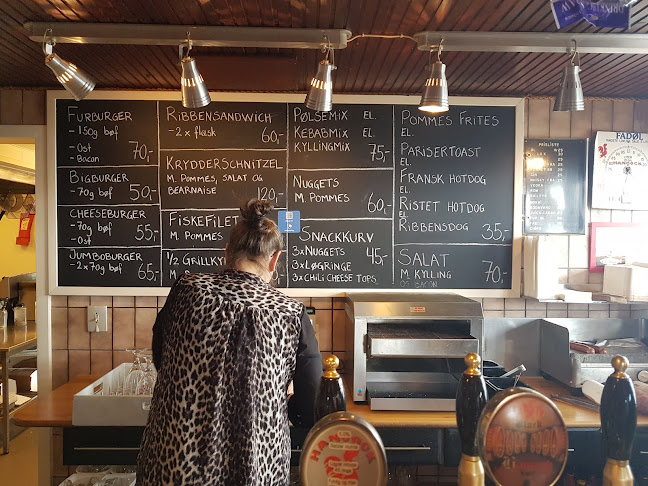 FURBURGER
- 150g bøf
- Ost
- Bacon 70,-
BIGBURGER
- 70g bøf 50,-
CHEESEBURGER
- 70g bøf
- Ost 55,-
JUMBOBURGER
- 2x70g bøf 65,-
RIBBENSANDWICH
- 2x flæsk 60,-
KRYDDERSCHNITZEL
M. POMMES, SALAT OG
BEARNAISE 120,-
FISKEFILET
M. POMMES
½ GRILLKY
PØLSEMIX EL.
KEBABMIX
KYLLINGMIX 75,-
NUGGETS
M. POMMES 60,-
SNACKKURV
3xNUGGETS 45,-
3xLØGRINGE
3x CHILI CHEESE TOPS
POMMES FRITES
EL.
PARISERTOAST
EL.
FRANSK HOTDOG
EL.
RISTET HOTDOG
EL.
RIBBENSDOG 35,-
SALAT
M. KYLLING 70,-
OG BACON
PRISLISTE
FADØL
HANCOCK